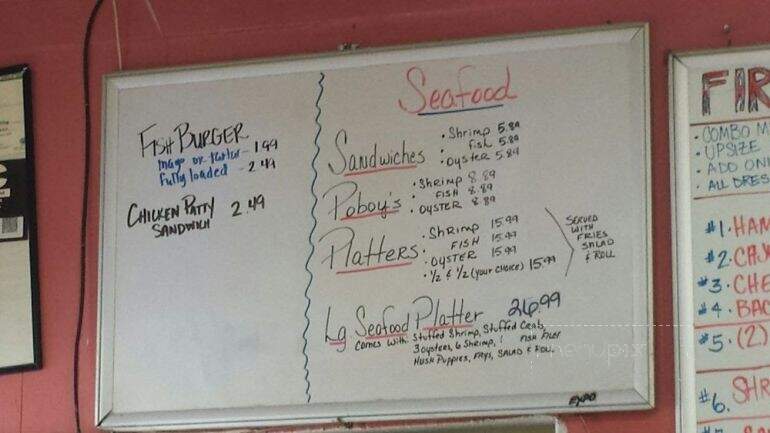 FISH BURGER
mayo or tartar - 1.99
Fully loaded - 2.49
CHICKEN PATTY 2.49
SANDWICH
Seafood
Sandwiches
• Shrimp 5.89
• Fish 5.89
• Oyster 5.89
Poboy's
• Shrimp 8.89
• FISH 8.89
• OYSTER 8.89
Platters
• Shrimp 15.99
• FISH 15.99
• OYSTER 15.99
• 1/2 & 1/2 (your choice) 15.99
SERVED
WITH
FRIES
SALAD
& ROLL
Lg Seafood Platter 26.99
comes with: Stuffed Shrimp, Stuffed Crab,
3 oysters, 6 Shrimp, 1 FISH FILET
HUSH PUPPIES, FRYS, SALAD & ROLL.
EXPO
FIR
• COMBO M
• UPSIZE
• ADD ON
• ALL DRES
#1. HAM
#2. CAJ
#3. CHE
#4. BAC
#5. (2)
#6. SHR